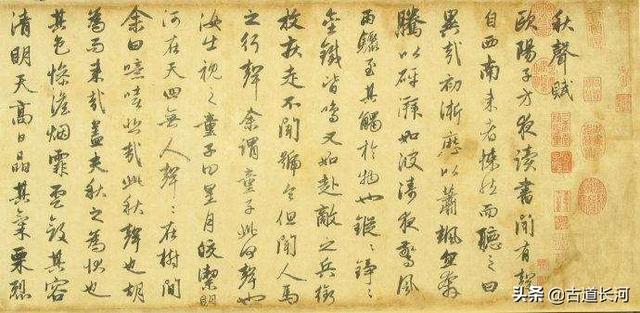 秋聲賦
歐陽子方夜讀書聞有聲
自西南来者悚然而聽之曰
異哉初淅瀝以蕭颯忽奔
騰以砰湃如波濤夜驚風
雨驟至其觸於物也鏦〻錚〻
金鐵皆鳴又如赴敵之兵銜
枚疾走不聞號令但聞人馬
之行聲余謂童子此何聲也
汝出視之童子曰星月皎潔明
河在天四無人聲〻在樹間
余曰噫嘻悲哉此秋聲也胡
為而来哉蓋夫秋之為狀也
其色慘澹烟霏雲斂其容
清明天高日晶其氣栗烈
头条@古道长河